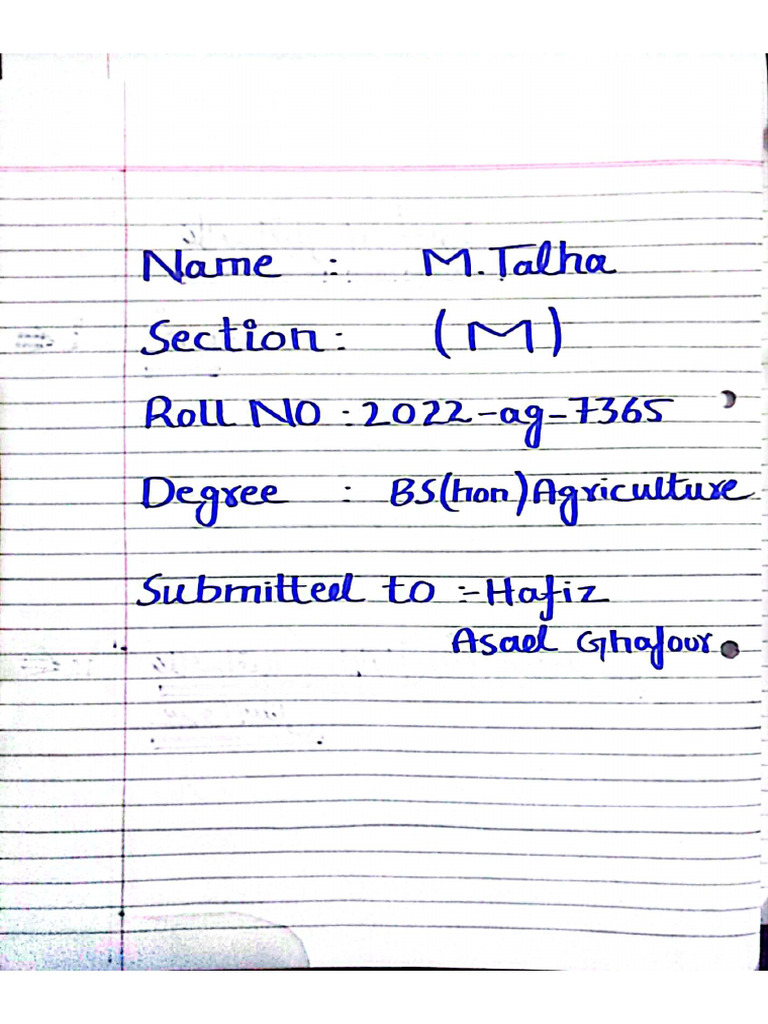 Name : M. Talha
Section : (M)
Roll NO : 2022-ag-7365
Degree : BS(hon) Agriculture
Submitted to :- Hafiz
Asad Ghafour.